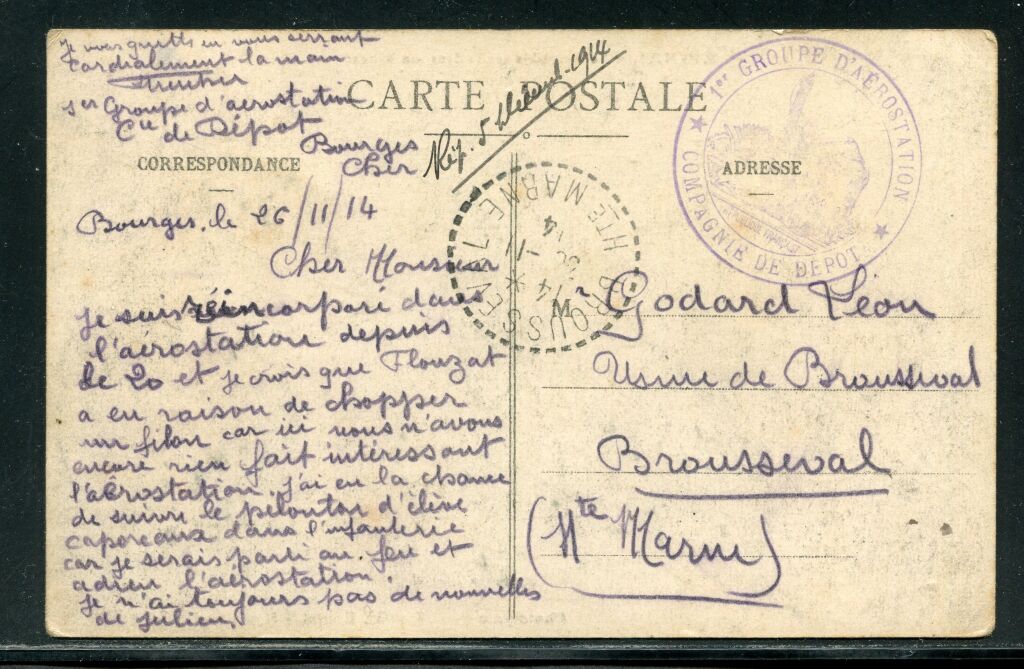 CARTE POSTALE
CORRESPONDANCE
ADRESSE
1er GROUPE D'AÉROSTATION
★ COMPAGNIE DE DÉPOT ★
BROUSSEVAL
HTE MARNE
14 * 
30 -11
14
Rép. 5 1914
Bourges, le 26/11/14
Cher Monsieur
Je suis réincorporé dans
l'aérostation depuis
le 20 et je crois que Flouzat
a eu raison de chopper
un filon car ici nous n'avons
encore rien fait intéressant
l'aérostation. j'ai eu la chance
de suivre le peloton d'élève
caporeaux dans l'infanterie
car je serais parti au feu et
adieu l'aérostation.
Je n'ai toujours pas de nouvelles
de Julien.
Je vous quitte en vous serrant
cordialement la main
1er Groupe d'aerostation
Cie de Dépôt
Bourges
Cher
M r Godard Léon
Usine de Brousseval
Brousseval
(Hte Marne)